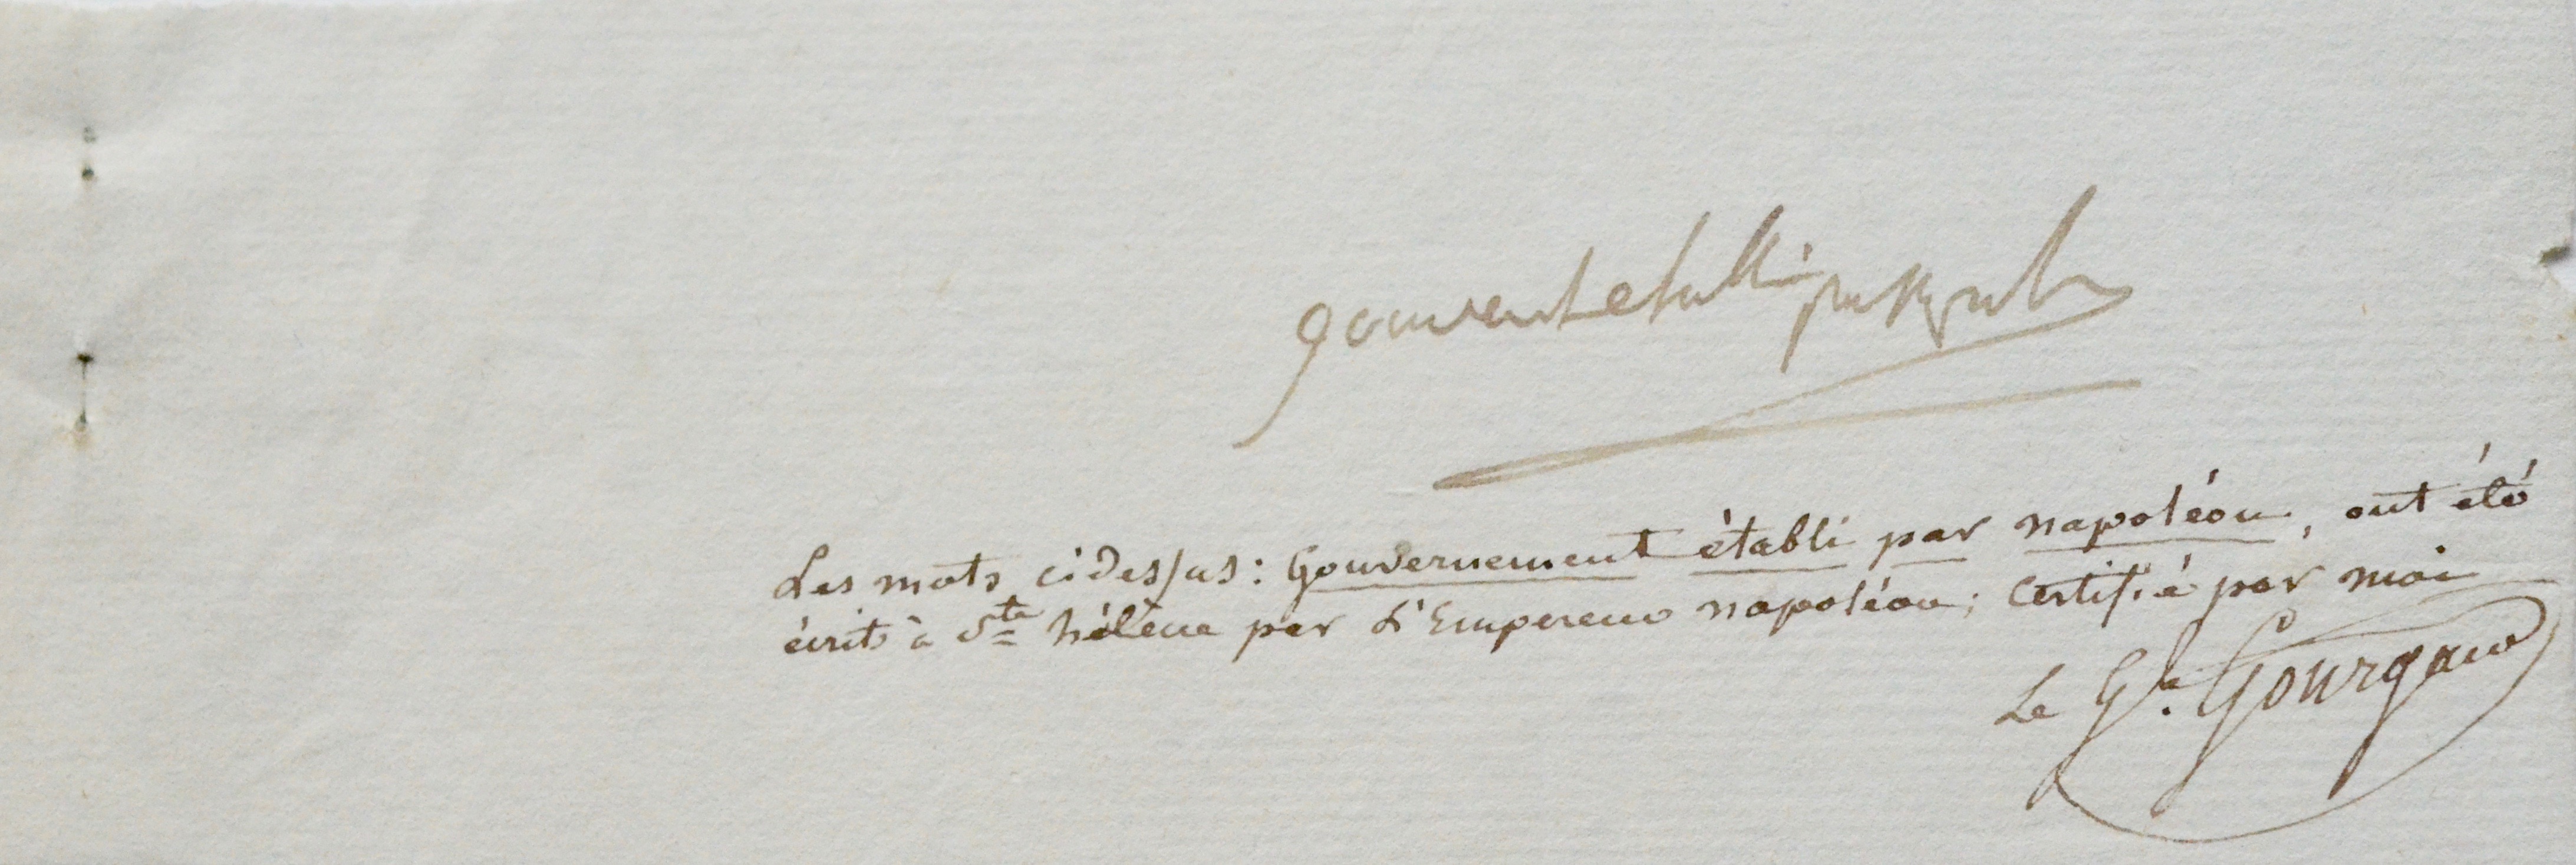 gouvent etabli par Napol
Les mots cidessus : Gouvernement établi par napoléon, ont été
écrits à Ste hélène par L'Empereur napoléon; Certifié par moi
Le Gal. Gourgaud